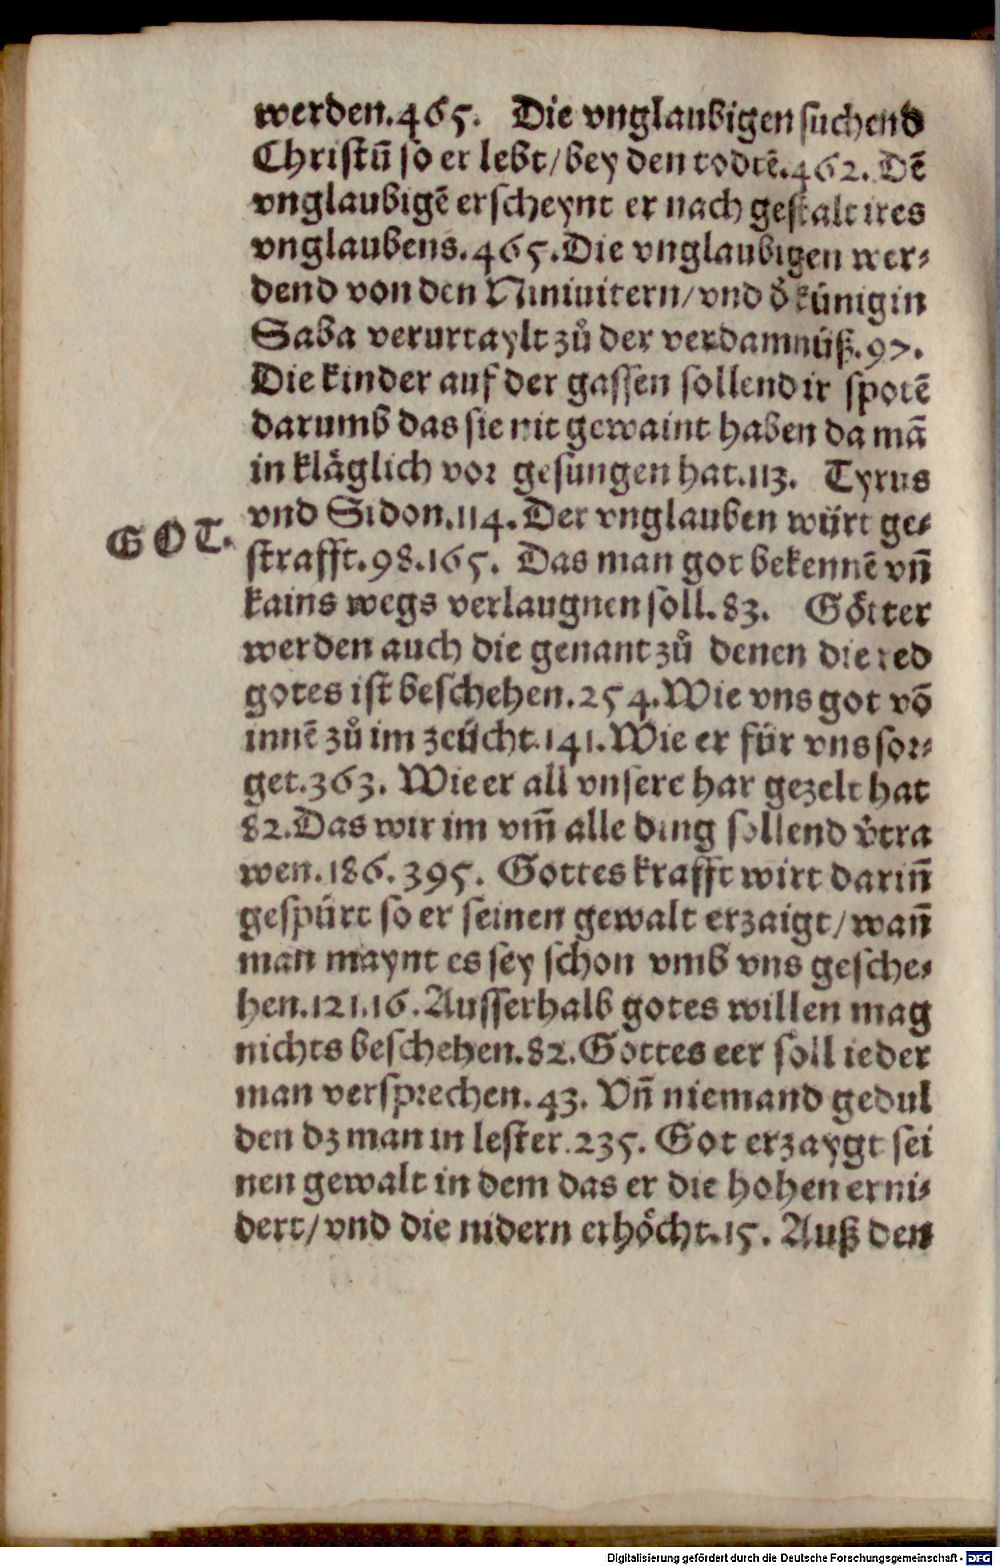 werden.465. Die vnglaubigen suchend
Christū so er lebt/bey den todtē.462. Dē
vnglaubigē erscheynt er nach gestalt ires
vnglaubens.465.Die vnglaubigen wer⸗
dend von den Niniuitern/vnd d̕ künigin
Saba verurtaylt zů der verdamnüß.97.
Die kinder auf der gassen sollend ir spotē
darumb das sie nit gewaint haben da mā
in kläglich vor gesungen hat.113. Tyrus
vnd Sidon.114.Der vnglauben würt ge⸗
GOT.
strafft.98.165. Das man got bekennē vñ
kains wegs verlaugnen soll.83. Götter
werden auch die genant zů denen die red
gotes ist beschehen.254.Wie vns got vō
innē zů im zeücht.141.Wie er für vns sor⸗
get.363. Wie er all vnsere har gezelt hat
82.Das wir im vm̄ alle ding sollend v̕tra
wen.186.395. Gottes krafft wirt dariñ
gespürt so er seinen gewalt erzaigt/wañ
man maynt es sey schon vmb vns gesche⸗
hen.121.16.Ausserhalb gotes willen mag
nichts beschehen.82.Gottes eer soll ieder
man versprechen.43. Vñ niemand gedul
den dz man in lester.235. Got erzaygt sei
nen gewalt in dem das er die hohen erni⸗
dert/vnd die nidern erhöcht.15. Auß den
Digitalisierung gefördert durch die Deutsche Forschungsgemeinschaft - DFG